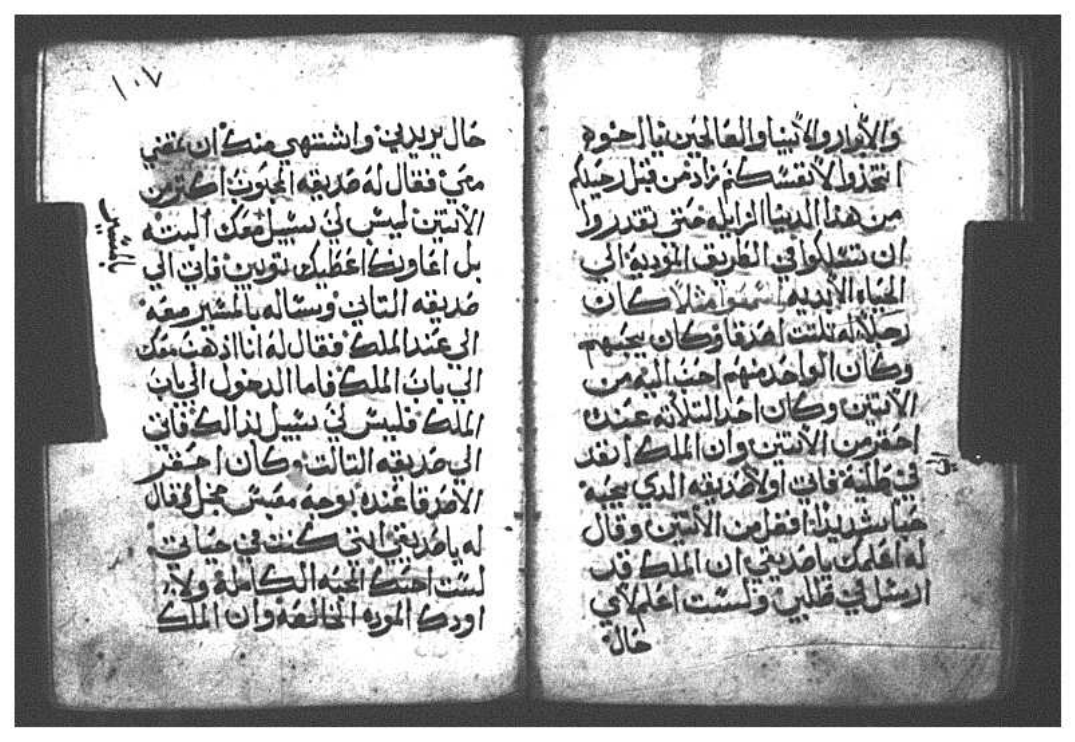 والابرار والانبيا والصالحين يا اخوه
اتخذوا لانفسكم زاد من قبل رحيلكم
من هذا الدنيا الزايله حتى تقدروا
ان تسلكوا في الطريق الموديه الي
الحياه الابديه اسمعوا مثلا كان
رجلا له تلتت اصدقا وكان يحبهم
وكان الواحد منهم احب اليه من
الاتنين وكان احد التلاته عنده
احقر من الاتنين وان الملك انفد
في طلبه فاتي اولا صديقه الدي يحبه
حبا شديدا افضل من الاتنين وقال
له اعلمك يا صديقي ان الملك قد
ارسل في طلبي ولست اعلم لاي
حال
١٠٧
حال يريدني واشتهي منك ان تمضي
معي فقال له صديقه المحبوب اكتر من
الاتنين ليس لي سبيل معك البته
بل اعاونك اعطيك توبين فاتي الي
صديقه التاني ويساله بالمسير معه
الي عند الملك فقال له انا ادهب معك
الي باب الملك فاما الدخول الي باب
الملك فليس لي سبيل لدالك فاتي
الي صديقه التالت وكان احقر
الاصدقا عنده بوجه مقبس مخجل وقال
له يا صديقي انني كنت في حياتي
لست احبك المحبه الكامله ولا
اودك الموده الخالصه وان الملك
المسير